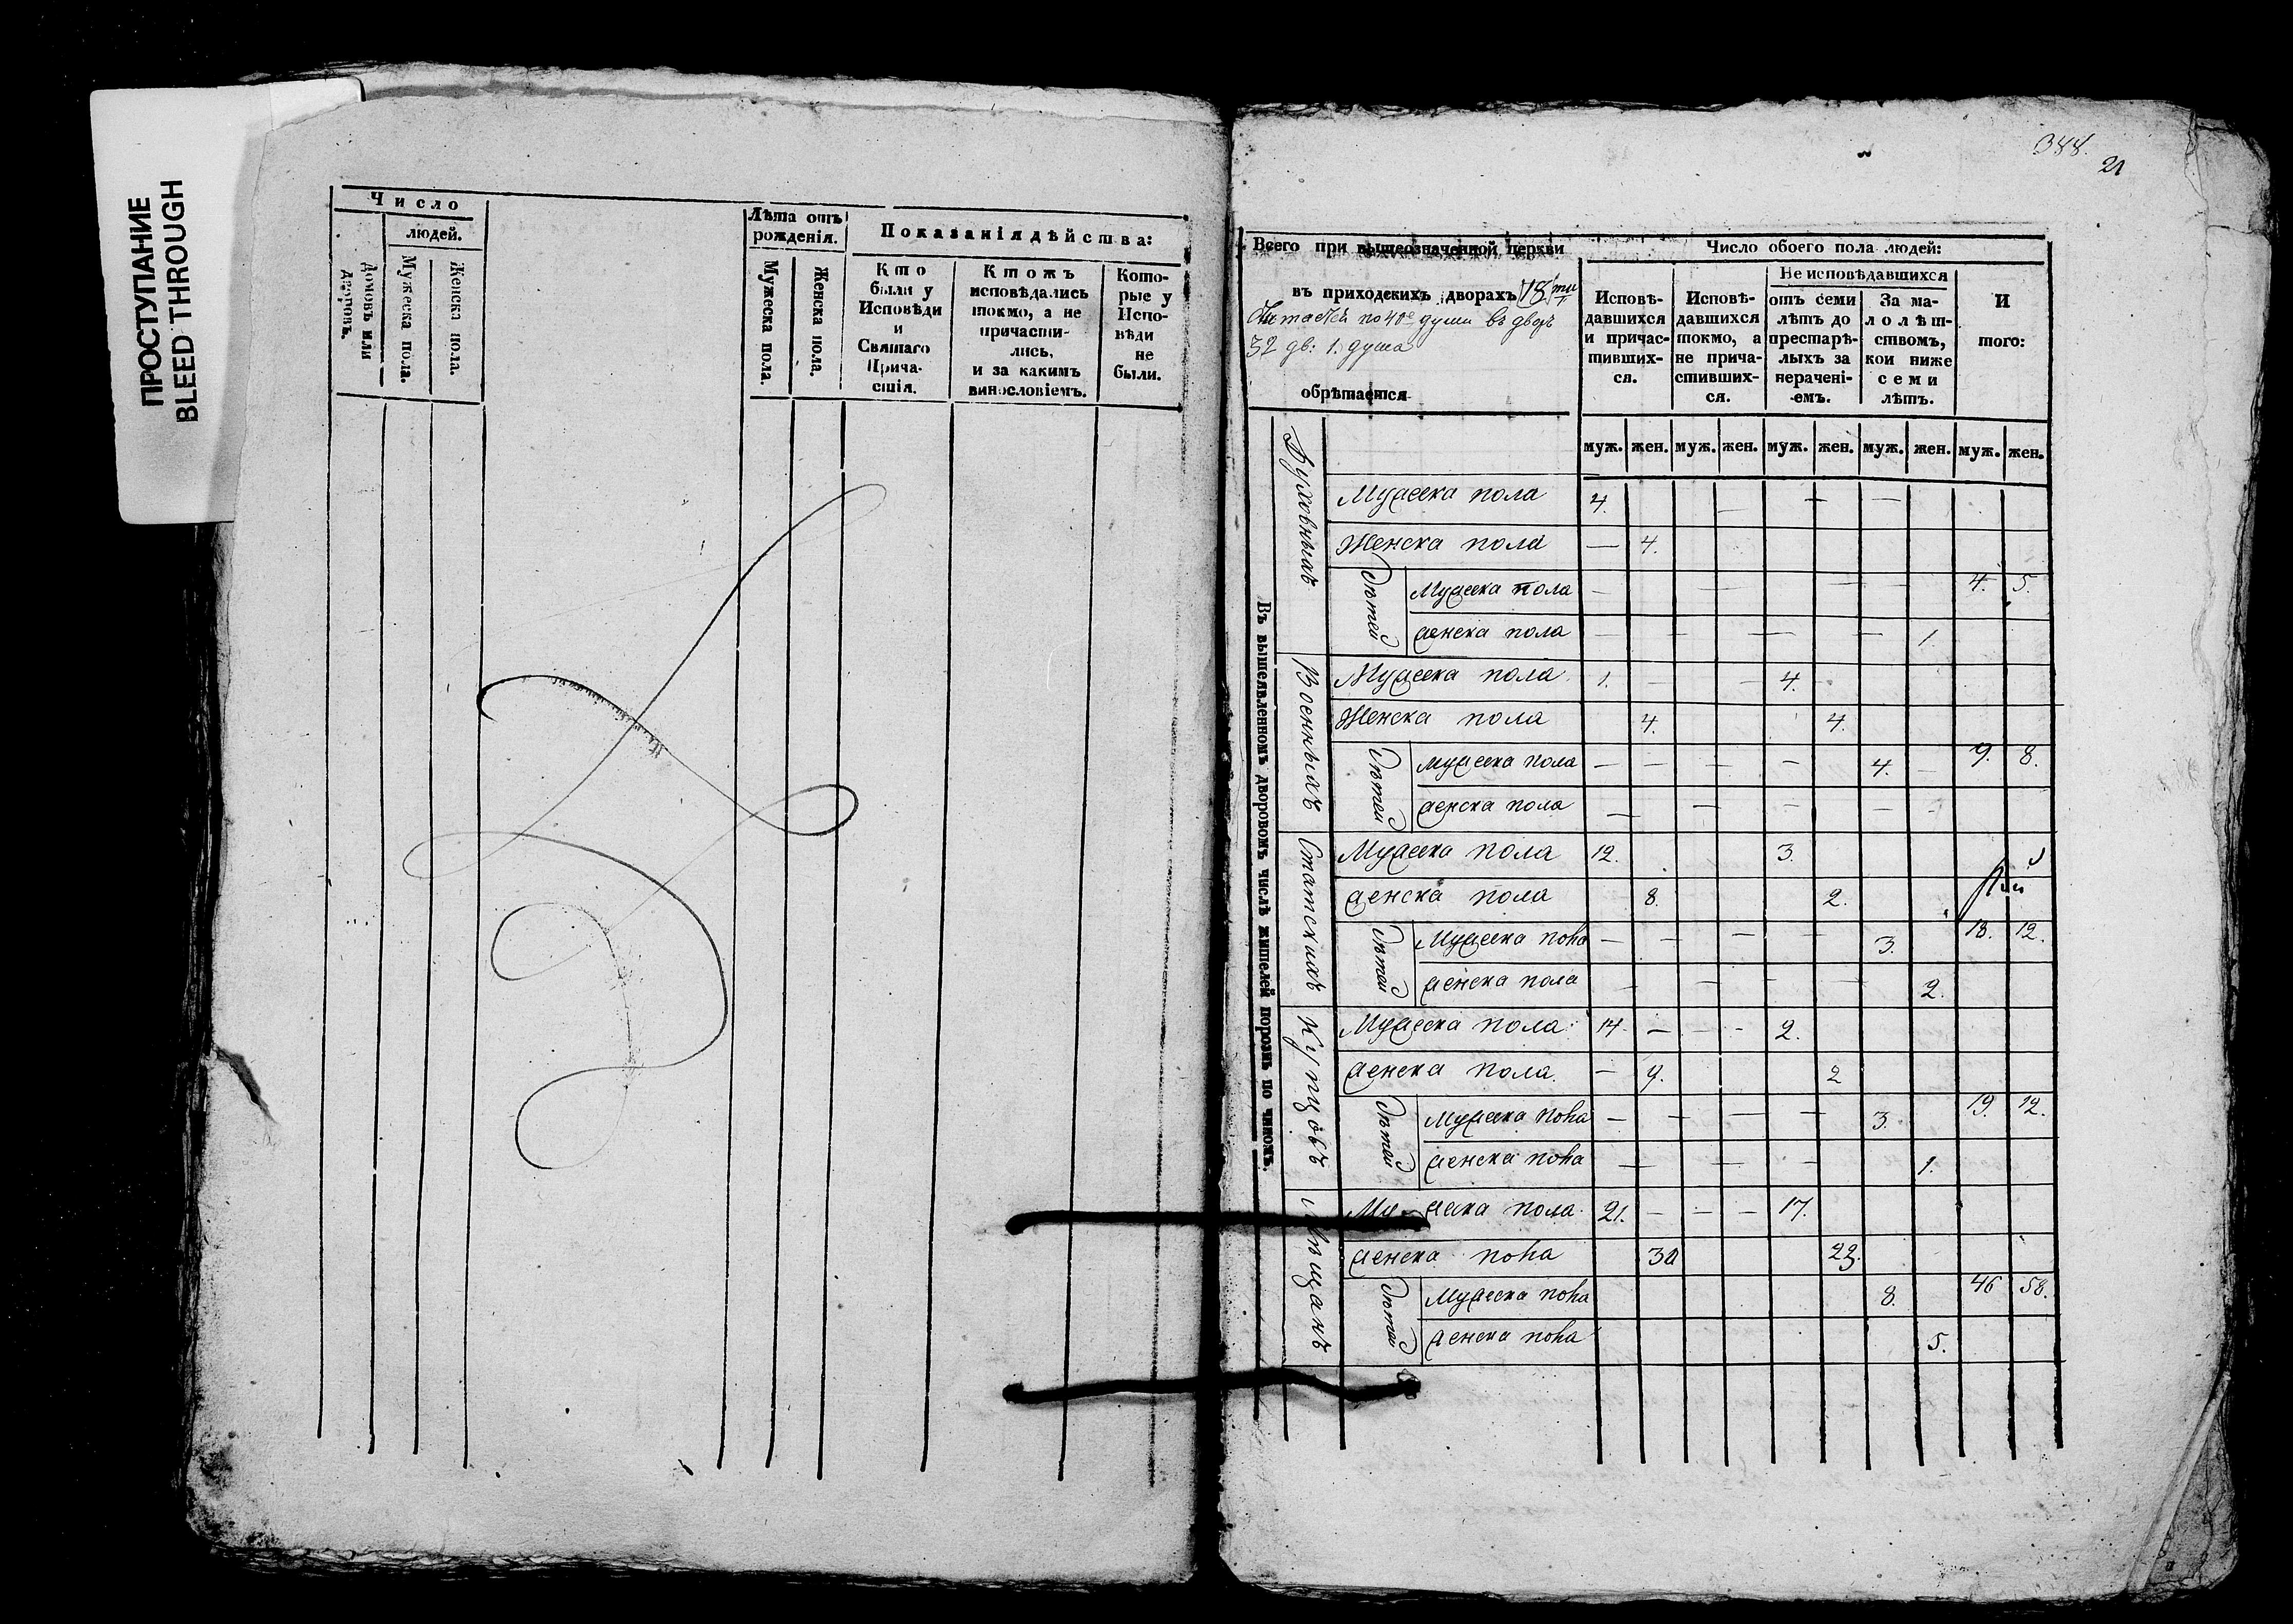 ПРОСТУПАНИЕ
BLEED THROUGH
Число
людей.
домовъ или дворовъ.
Мужеска пола.
Женска пола.
Лѣта отъ
рожденія.
Мужеска пола.
Женска пола.
Показанія дѣйства:
Кто
были у
Исповѣди
и
Святаго
Прича-
стія.
Ктожъ
исповѣдались
токмо, а не
причасти-
лись,
и за какимъ
винословіемъ.
Кото-
рые у
Испо-
вѣди
не
были.
388.
21
Всего при вышеозначенной церкви
въ приходскихъ дворахъ 18ти
по 40е души въ дворѣ
32 дв: 1. душа
обрѣтается
Число обоего пола людей:
Исповѣ-
давшихся
и причас-
тивших-
ся.
Исповѣ-
давшихся
токмо, а
не прича-
стивших-
ся.
Не исповѣдавшихся
отъ семи
лѣтъ до
престарѣ-
лыхъ за
нерачені-
емъ.
За ма-
лолѣт-
ствомъ,
кои ниже
семи
лѣтъ.
И
того:
муж. жен. муж. жен. муж. жен. муж. жен. муж. жен.
Въ вышеявленномъ дворовомъ числѣ жителей порознь по чиномъ.
Духовныхъ
Мужеска пола 4. — — —
Женска пола — 4.
Дѣтей
Мужеска пола — — — — 4. 5.
женска пола — — — — 1.
Военныхъ
Мужеска пола 1. — — — 4. —
Женска пола 4. 4.
Дѣтей
мужеска пола — — — — 4. — 9. 8.
женска пола — — — — —
Статскихъ
Мужеска пола 12. 3.
женска пола 8. 2.
Дѣтей
Мужеска пола — — — — 3. 18. 12.
женска пола — — — — 2.
Купцовъ
Мужеска пола 14 — — — 2.
женска пола — 9. 2
Дѣтей
Мужеска пола — — — — 3. 19. 12.
женска пола — — — 1.
Мѣщанъ
Мужеска пола 21. — — — 17.
женска пола 30 22.
Дѣтей
Мужеска пола 8. 46 58.
женска пола 5.